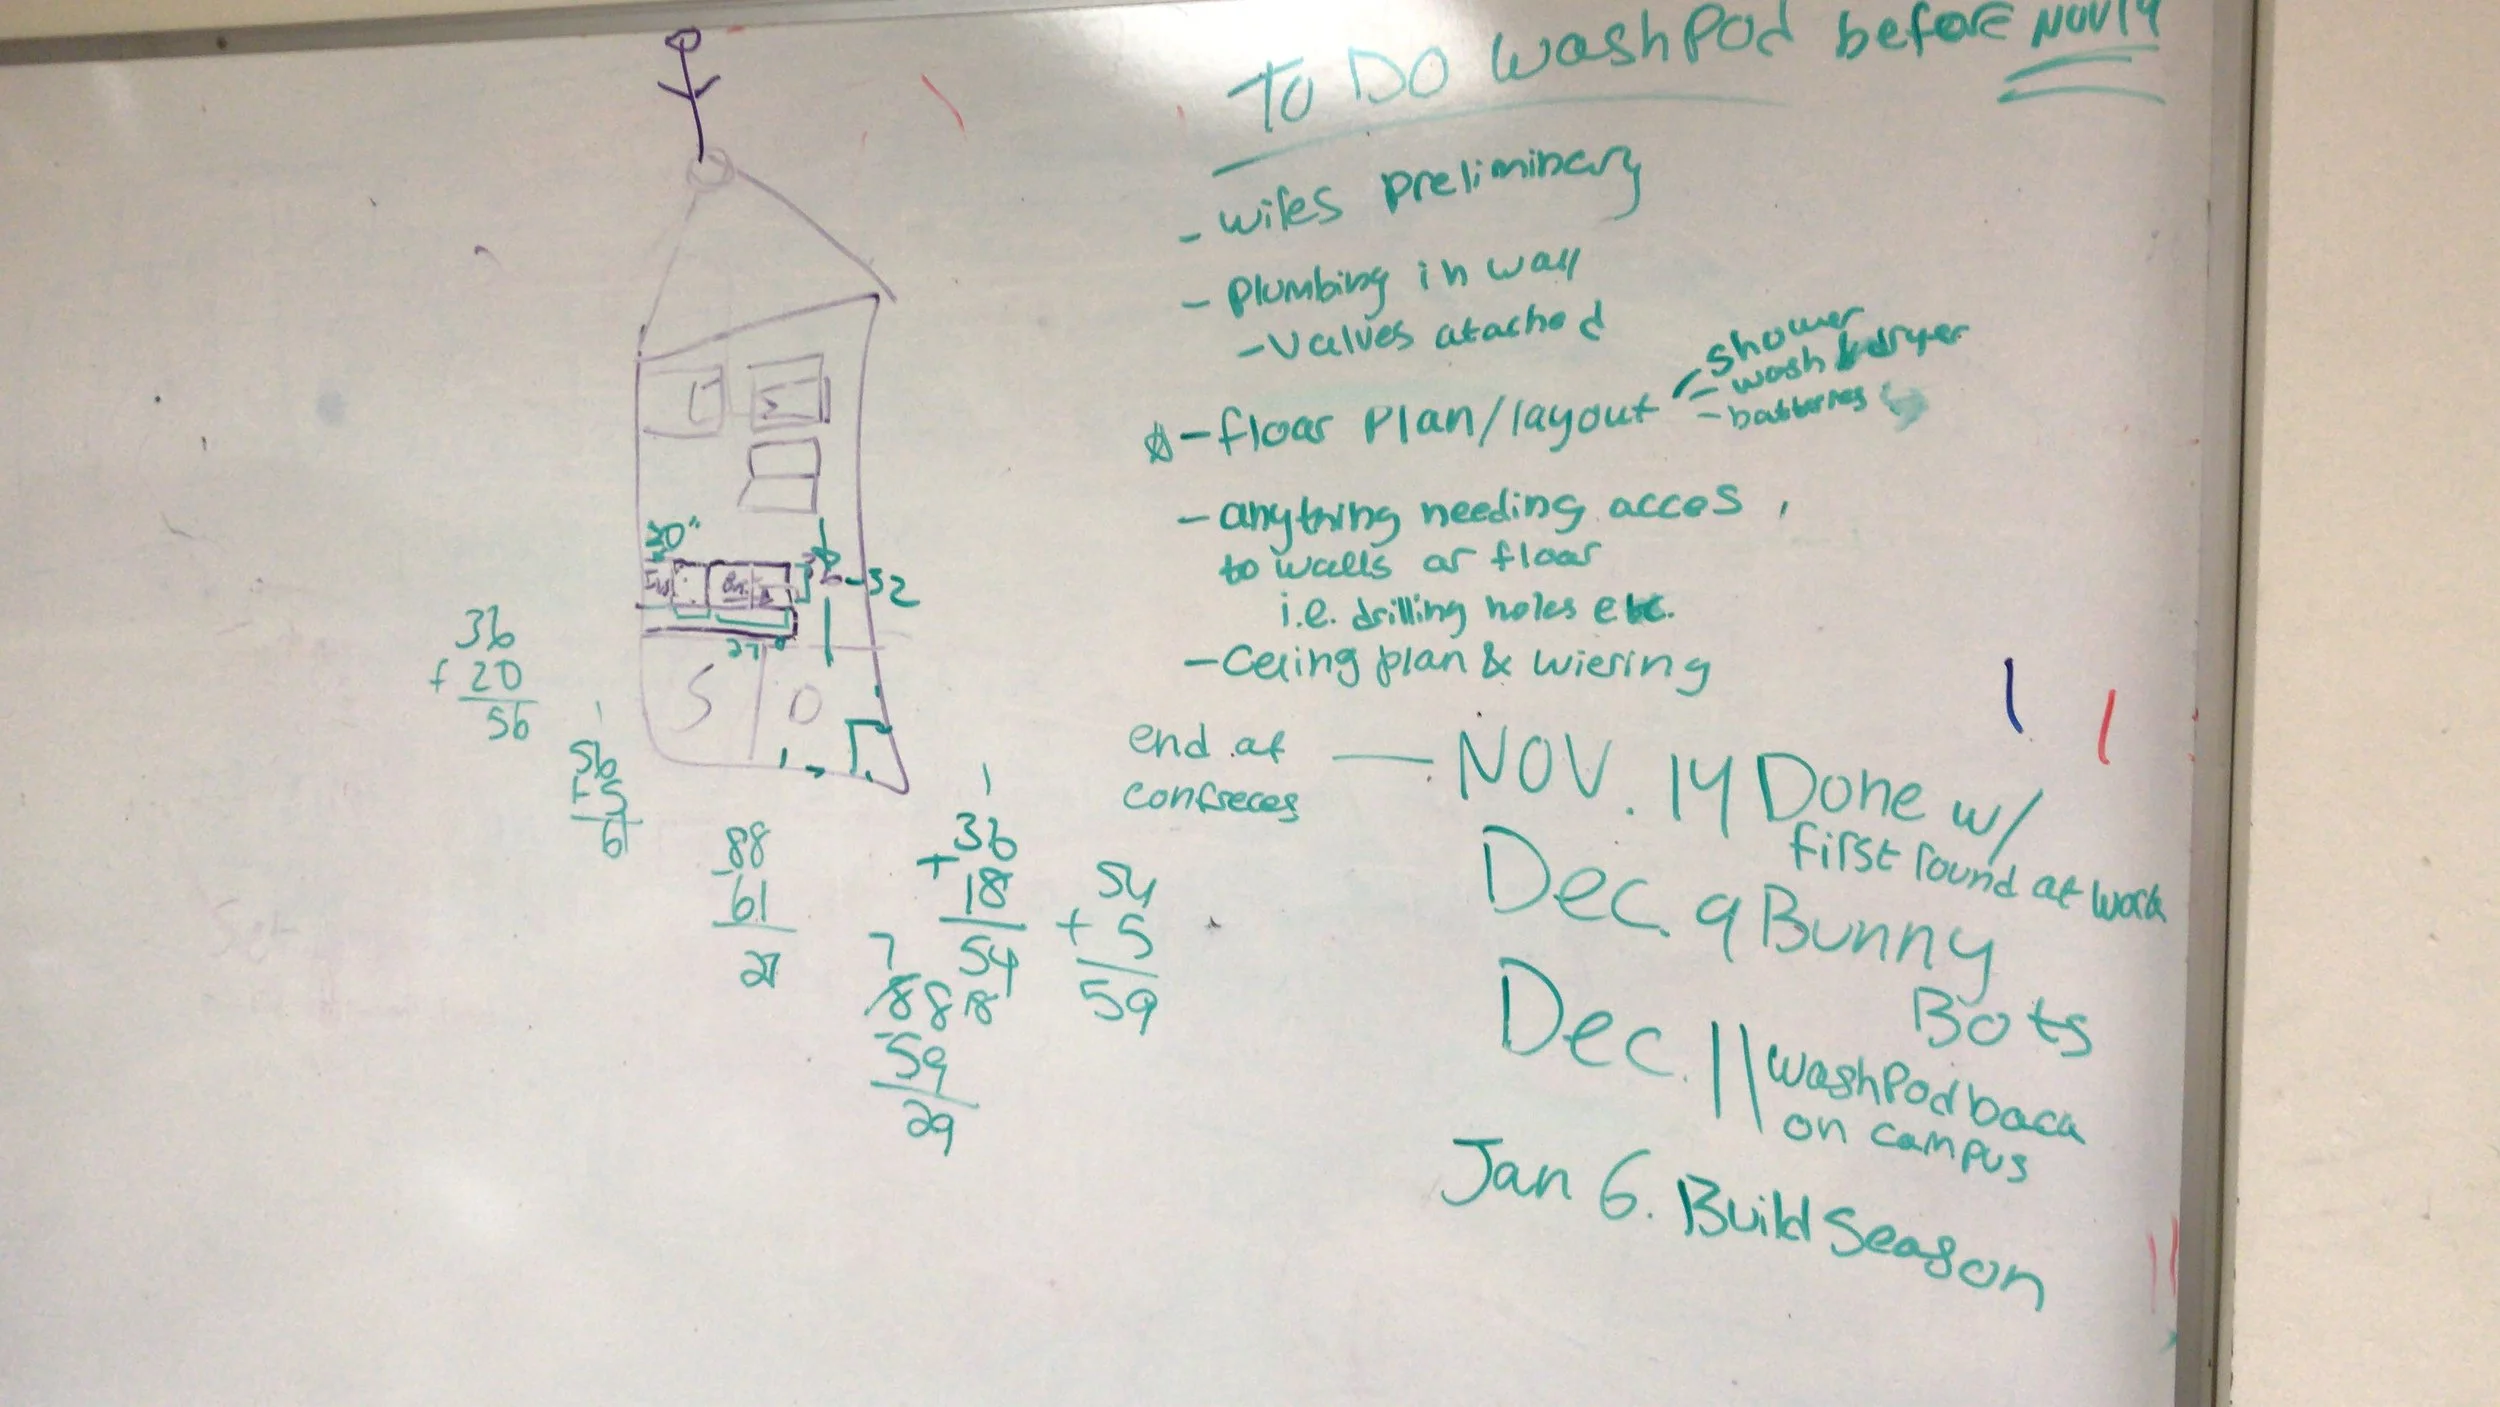 To DO washPod before NOV 14
- wires preliminary
- Plumbing in wall
- Valves atached
- floor Plan/layout
- shower
- wash & dryer
- batteries
- anything needing acces
to walls or floor
i.e. drilling holes etc.
- Ceiing plan & wiering
end at
NOV. 14 Done w/
first round at work
Dec. 9 Bunny
Bots
Dec. 11 WashPod back
on campus
Jan 6. Build Season
20"
32
27"
S
O
36
+ 20
56
1
56
+ 5
61
88
- 61
27
1
36
+ 18
54
54
+ 5
59
7
88 18
- 59
29